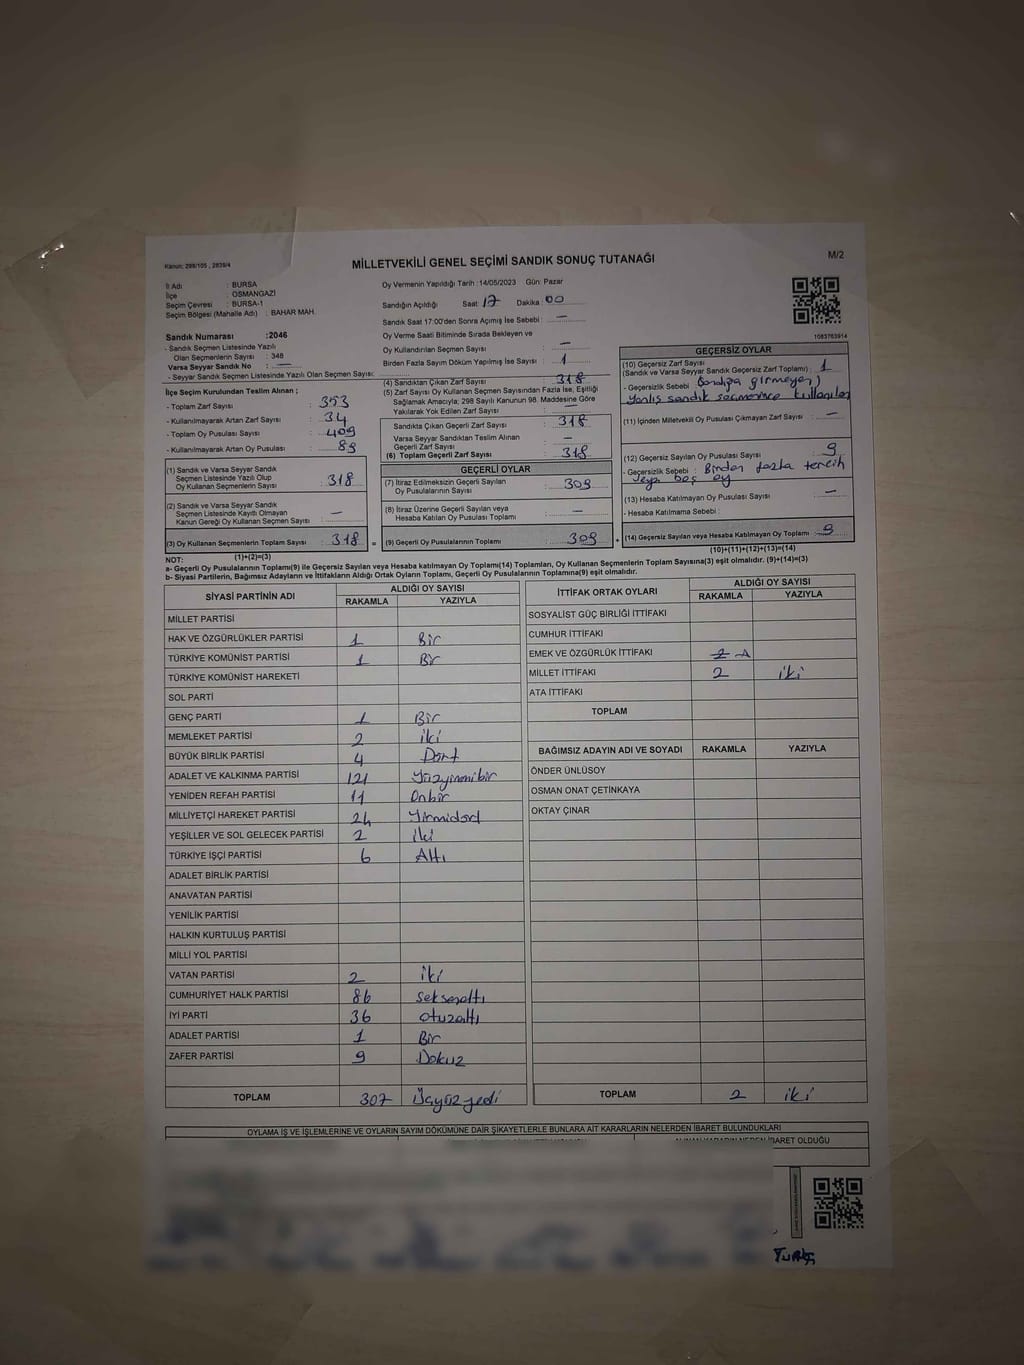 Kanun: 298/105 , 2839/4
MİLLETVEKİLİ GENEL SEÇİMİ SANDIK SONUÇ TUTANAĞI
M/2
İl Adı : BURSA
İlçe : OSMANGAZİ
Seçim Çevresi : BURSA-1
Seçim Bölgesi (Mahalle Adı) : BAHAR MAH.
Oy Vermenin Yapıldığı Tarih :14/05/2023 Gün: Pazar
Sandığın Açıldığı Saat : 17 Dakika : 00
Sandık Saat 17:00'den Sonra Açılmış İse Sebebi : —
Oy Verme Saati Bitiminde Sırada Bekleyen ve
Oy Kullandırılan Seçmen Sayısı : —
Birden Fazla Sayım Döküm Yapılmış İse Sayısı : 1
1083763914
Sandık Numarası :2046
- Sandık Seçmen Listesinde Yazılı
Olan Seçmenlerin Sayısı : 348
Varsa Seyyar Sandık No : —
- Seyyar Sandık Seçmen Listesinde Yazılı Olan Seçmen Sayısı:
İlçe Seçim Kurulundan Teslim Alınan ;
- Toplam Zarf Sayısı : 353
- Kullanılmayarak Artan Zarf Sayısı : 34
- Toplam Oy Pusulası Sayısı : 409
- Kullanılmayarak Artan Oy Pusulası : 89
(1) Sandık ve Varsa Seyyar Sandık
Seçmen Listesinde Yazılı Olup
Oy Kullanan Seçmenlerin Sayısı : 318
(2) Sandık ve Varsa Seyyar Sandık
Seçmen Listesinde Kayıtlı Olmayan
Kanun Gereği Oy Kullanan Seçmen Sayısı : —
(3) Oy Kullanan Seçmenlerin Toplam Sayısı : 318 =
(1)+(2)=(3)
(4) Sandıktan Çıkan Zarf Sayısı : 318
(5) Zarf Sayısı Oy Kullanan Seçmen Sayısından Fazla İse, Eşitliği
Sağlamak Amacıyla; 298 Sayılı Kanunun 98. Maddesine Göre
Yakılarak Yok Edilen Zarf Sayısı : —
Sandıkta Çıkan Geçerli Zarf Sayısı : 318
Varsa Seyyar Sandıktan Teslim Alınan
Geçerli Zarf Sayısı : —
(6) Toplam Geçerli Zarf Sayısı : 318
GEÇERLİ OYLAR
(7) İtiraz Edilmeksizin Geçerli Sayılan
Oy Pusulalarının Sayısı : 309
(8) İtiraz Üzerine Geçerli Sayılan veya
Hesaba Katılan Oy Pusulası Toplamı : —
(9) Geçerli Oy Pusulalarının Toplamı : 309 +
GEÇERSİZ OYLAR
(10) Geçersiz Zarf Sayısı
(Sandık ve Varsa Seyyar Sandık Geçersiz Zarf Toplamı) : 1
- Geçersizlik Sebebi : Sandığa girmeyen,
Yanlış sandık seçmenince kullanılan
(11) İçinden Milletvekili Oy Pusulası Çıkmayan Zarf Sayısı : —
(12) Geçersiz Sayılan Oy Pusulası Sayısı : 9
- Geçersizlik Sebebi : Birden fazla tercih
veya boş oy
(13) Hesaba Katılmayan Oy Pusulası Sayısı : —
- Hesaba Katılmama Sebebi :
(14) Geçersiz Sayılan veya Hesaba Katılmayan Oy Toplamı : 9
(10)+(11)+(12)+(13)=(14)
NOT:
a- Geçerli Oy Pusulalarının Toplamı(9) ile Geçersiz Sayılan veya Hesaba Katılmayan Oy Toplamı(14) Toplamları, Oy Kullanan Seçmenlerin Toplam Sayısına(3) eşit olmalıdır. (9)+(14)=(3)
b- Siyasi Partilerin, Bağımsız Adayların ve İttifakların Aldığı Ortak Oyların Toplamı, Geçerli Oy Pusulalarının Toplamına(9) eşit olmalıdır.
SİYASİ PARTİNİN ADI ALDIĞI OY SAYISI
RAKAMLA YAZIYLA
MİLLET PARTİSİ
HAK VE ÖZGÜRLÜKLER PARTİSİ 1 Bir
TÜRKİYE KOMÜNİST PARTİSİ 1 Bir
TÜRKİYE KOMÜNİST HAREKETİ
SOL PARTİ
GENÇ PARTİ 1 Bir
MEMLEKET PARTİSİ 2 iki
BÜYÜK BİRLİK PARTİSİ 4 Dört
ADALET VE KALKINMA PARTİSİ 121 Yüzyirmibir
YENİDEN REFAH PARTİSİ 11 Onbir
MİLLİYETÇİ HAREKET PARTİSİ 24 Yirmidört
YEŞİLLER VE SOL GELECEK PARTİSİ 2 iki
TÜRKİYE İŞÇİ PARTİSİ 6 Altı
ADALET BİRLİK PARTİSİ
ANAVATAN PARTİSİ
YENİLİK PARTİSİ
HALKIN KURTULUŞ PARTİSİ
MİLLİ YOL PARTİSİ
VATAN PARTİSİ 2 iki
CUMHURİYET HALK PARTİSİ 86 Seksenaltı
İYİ PARTİ 36 otuzaltı
ADALET PARTİSİ 1 Bir
ZAFER PARTİSİ 9 Dokuz
TOPLAM 307 Üçyüzyedi
İTTİFAK ORTAK OYLARI ALDIĞI OY SAYISI
RAKAMLA YAZIYLA
SOSYALİST GÜÇ BİRLİĞİ İTTİFAKI
CUMHUR İTTİFAKI
EMEK VE ÖZGÜRLÜK İTTİFAKI
MİLLET İTTİFAKI 2 iki
ATA İTTİFAKI
TOPLAM
BAĞIMSIZ ADAYIN ADI VE SOYADI RAKAMLA YAZIYLA
ÖNDER ÜNLÜSOY
OSMAN ONAT ÇETİNKAYA
OKTAY ÇINAR
TOPLAM 2 iki
OYLAMA İŞ VE İŞLEMLERİNE VE OYLARIN SAYIM DÖKÜMÜNE DAİR ŞİKAYETLERLE BUNLARA AİT KARARLARIN NELERDEN İBARET BULUNDUKLARI
İBARET OLDUĞU